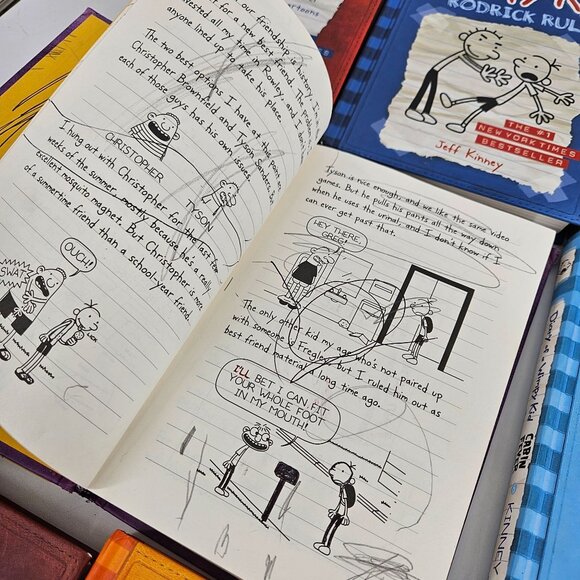 our friendship is history, I'm
for a new best friend. The problem
invested all my time in Rowley, and I
anyone lined up to take his place.
The two best options I have at this point
Christopher Brownfield and Tyson Sanders. But
each of those guys has his own issues.
CHRISTOPHER
TYSON
I hung out with Christopher for the last few
weeks of the summer, mostly because he's a really
excellent mosquito magnet. But Christopher is more
of a summertime friend than a school year friend.
OUCH!
SWAT!
Tyson is nice enough, and we like the same video
games. But he pulls his pants all the way down
when he uses the urinal, and I don't know if I
can ever get past that.
HEY THERE,
GREG!
The only other kid my age who's not paired up
with someone is Fregley, but I ruled him out as
best friend material a long time ago.
I'LL BET I CAN FIT
YOUR WHOLE FOOT
IN MY MOUTH!
RODRICK RUL
THE #1
NEW YORK TIMES
BESTSELLER
Jeff Kinney
cartoons
Diary of a Wimpy Kid
CABIN
FEVER
KINNEY